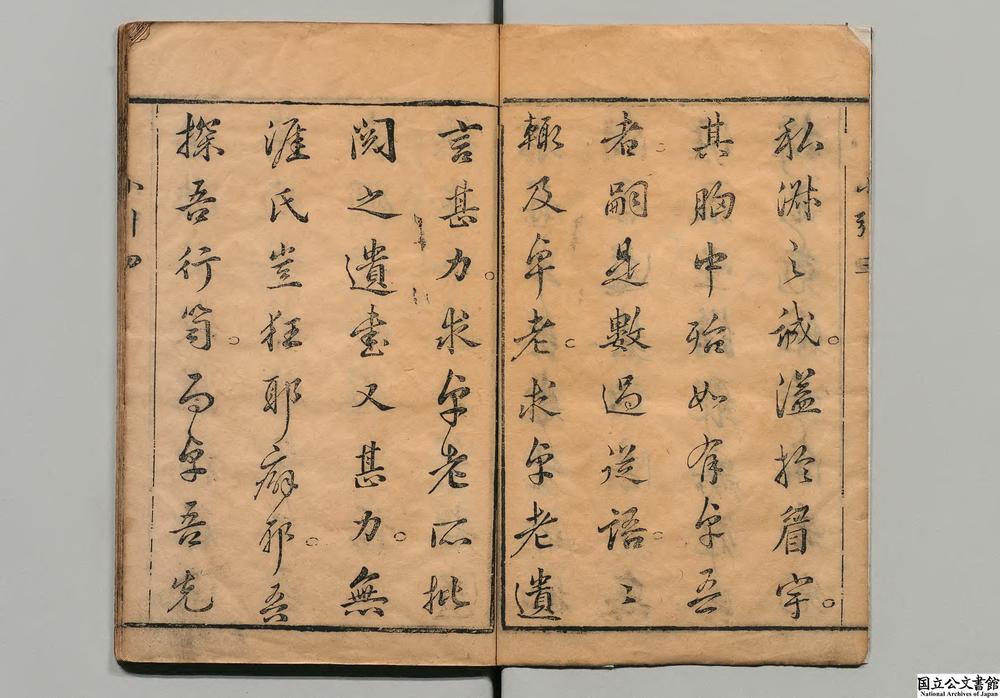 私淑之誠。溢於眉宇。
其胸中殆如有卓吾
者。嗣是數過從語。〻
輒及卓老。求卓老遺
言甚力。求卓老所批
閱之遺書又甚力。無
涯氏豈狂耶癖耶。吾
探吾行笥。而卓吾先
国立公文書館
National Archives of Japan